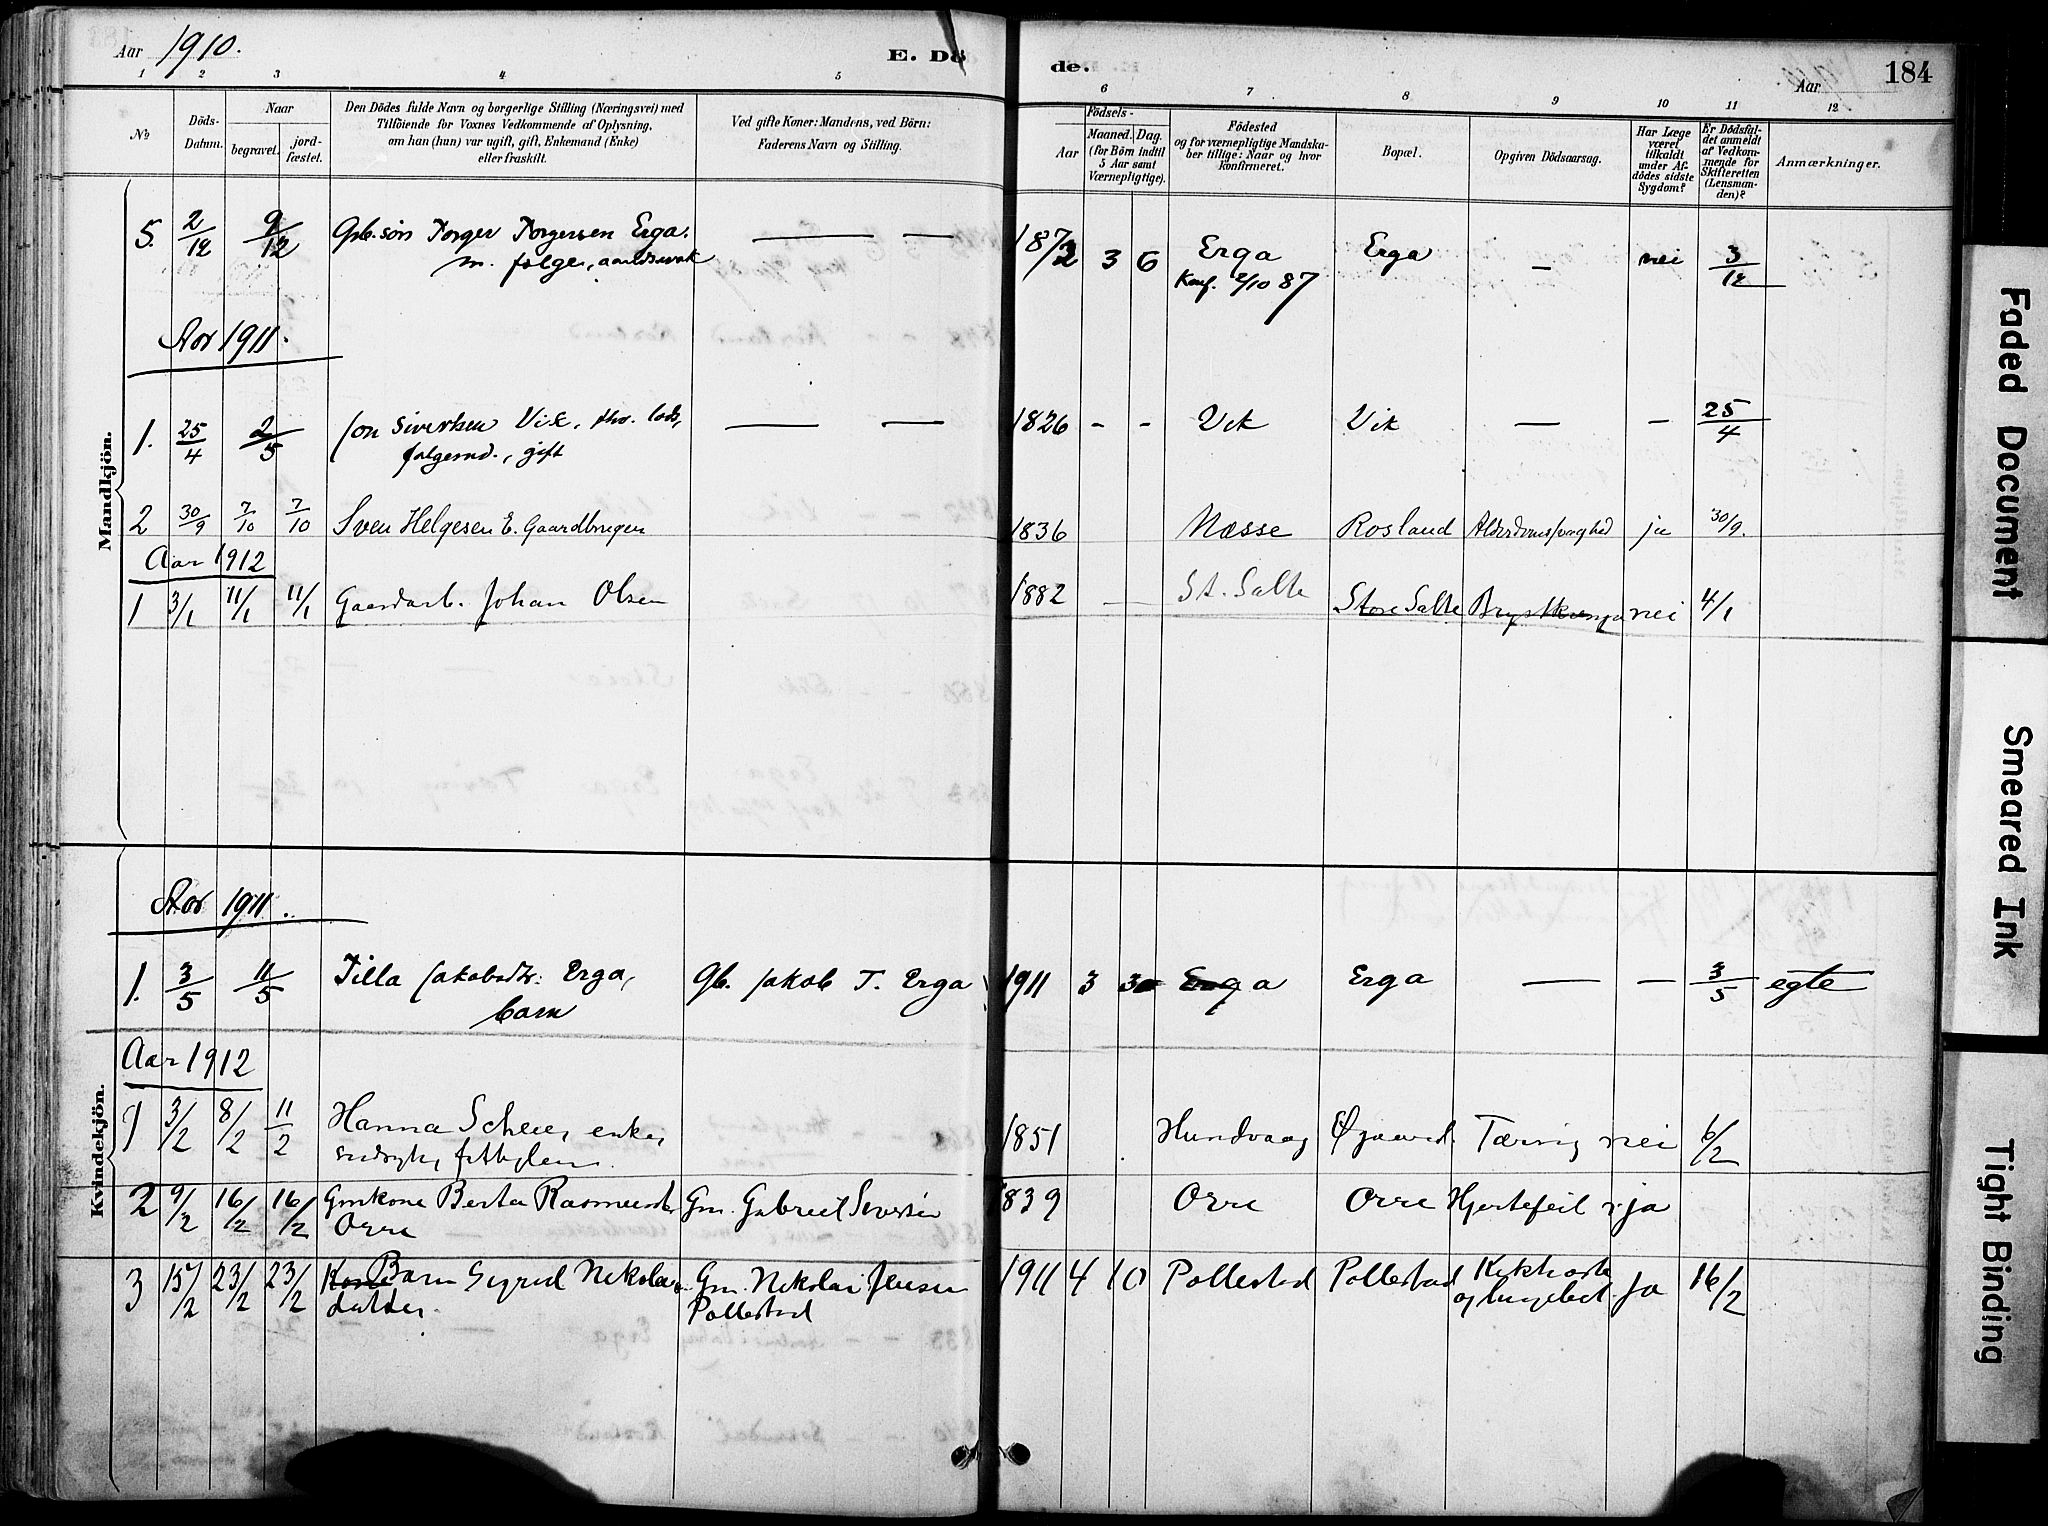 Aar 1910.
E. Dö
de.
Aar
184
1 2 3 4 5 6 7 8 9 10 11 12
No
Döds-Datum.
Naar
begravet.
jord-fæstet.
Den Dödes fulde Navn og borgerlige Stilling (Næringsvei) med
Tilföiende for Voxnes Vedkommende af Oplysning,
om han (hun) var ugift, gift, Enkemand (Enke)
eller fraskilt.
Ved gifte Koner: Mandens, ved Börn:
Faderens Navn og Stilling.
Födsels-
Aar
Maaned. Dag.
(for Börn indtil
5 Aar samt
Værnepligtige).
Födested
og for værnepligtige Mandska-
ber tillige: Naar og hvor
konfirmeret.
Bopæl.
Opgiven Dödsaarsag.
Har Læge
været
tilkaldt
under Af-
dödes sidste
Sygdom?
Er Dödsfal-
det anmeldt
af Vedkom-
mende for
Skifteretten
(Lensman-
den)?
Anmærkninger.
Mandkjön.
5. 2/12 9/12 Gb. søn Torger Torgersen Erga. — — 1872 3 6 Erga Erga — nei 3/12
Konf. 2/10 87
Aar 1911.
1. 25/4 2/5 Jon Sivertsen Vik, fhv. lods, — — 1826 - - Vik Vik — — 25/4
folgemd., gift
2 30/9 7/10 7/10 Sven Helgesen E. Gaardbruger 1836 Næsse Rosland Alderdomssvaghed ja 30/9.
Aar 1912
1 3/1 11/1 11/1 Gaardarb. Johan Olsen 1882 — St. Salte Store Salte nei 4/1
Kvindekjön.
Aar 1911.
1. 3/5 11/5 Tilla Jakobsdtr. Erga, Gb. Jakob T. Erga 1911 3 30 Erga Erga — — 3/5 egte
barn
Aar 1912
1 3/2 8/2 11/2 Hanna Scheie, enke, 1851 Hundvaag Øgaard. Tæring nei 6/2
2 9/2 16/2 16/2 Gmkone Berta Rasmusdtr Gm. Gabriel Sivertsen 1839 Orre Orre Hjertefeil ja
Orre
3 15/2 23/2 23/2 Kone Barn Sigrid Nikolai Gm. Nikolai Jensen 1911 4 10 Pollestad Pollestad Kikhoste ja 16/2
datter. Pollestad og
Faded Document
Smeared Ink
Tight Binding